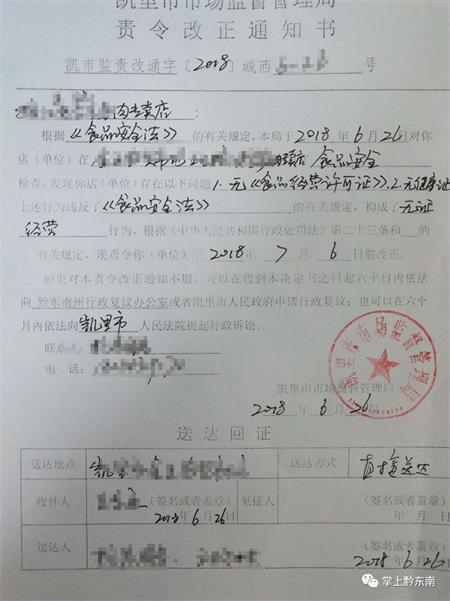 凯里市市场监督管理局
责令改正通知书
凯市监责改通字〔2018〕城西 号
肉专卖店:
根据《食品安全法》的有关规定,本局于2018年6月26日对你
店(单位)在 食品安全
检查,发现你店(单位)存在以下问题:1.无《食品经营许可证》.2.无健康证
上述行为违反了《食品安全法》的有关规定,构成了无证
经营 行为,根据《中华人民共和国行政处罚法》第二十三条和 的
有关规定,现责令你(单位)于2018年7月6日前改正。
如果对本责令改正通知不服,可以在收到本决定书之日起六十日内依法
向黔东南州行政复议办公室或者凯里市人民政府申请行政复议;也可以在六个
月内依法向凯里市人民法院提起行政诉讼。
联系
电话:
凯里市市场监督管理局
2018年6月26日
送达回证
送达地点 凯 送达方式 直接送达
收件人 (签名或者盖章) 见证人 (签名或者盖章)
6月26日 年 月 日
送达人 (签名或者盖章)
2018年6月26日
掌上黔东南